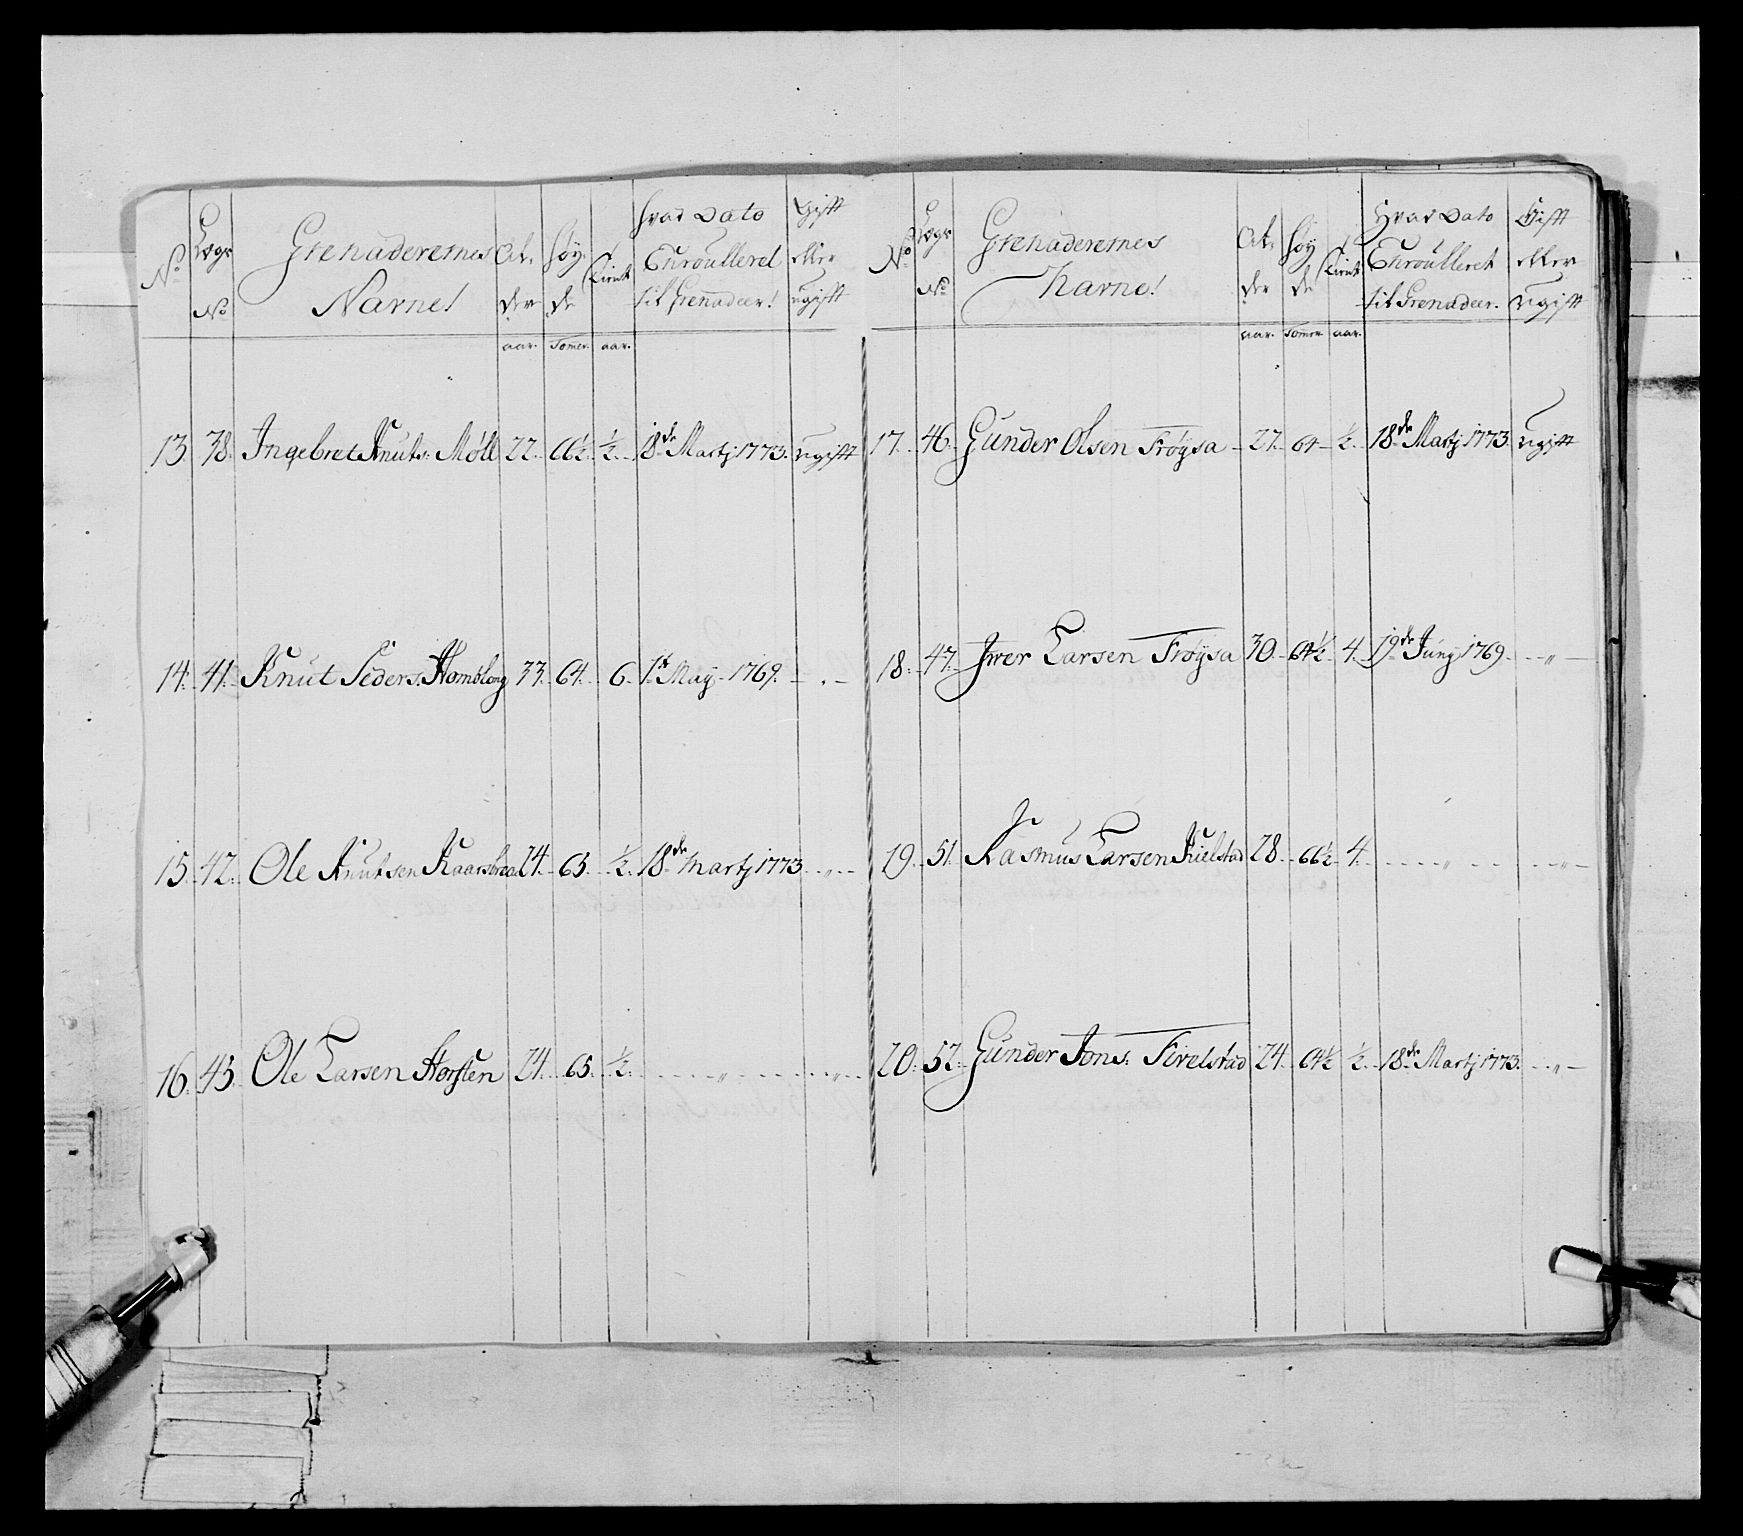 No Lægs No Grenaderernes Navne! Al- der Høy- de tient Hvad Dato Enroulleret til Grenadeer! Gift eller ugift
aar. Tomer. aar.
13. 38. Ingebret Knuts: Möll 22. 66½. ½. 18de Martj 1773. ugift
14. 41. Knut Peders. 33. 64. 6. 1te Maÿ 1769. — . —
15. 42. Ole Knutsen 24. 65. ½. 18de Martj 1773. — „ —
16. 43. Ole Larsen 24. 65. ½. — „ — — „ —
No Lægs No Grenaderernes Navne! Al- der Høy- de tient Hvad Dato Enroulleret til Grenadeer. Gift eller ugift
aar. Tomer. aar.
17. 46. Gunder Olsen Frøysa 27. 64 ½. 18de Martj 1773 ugift
18. 47. Iwer Larsen Frøysa 30. 64½. 4. 19de Junÿ 1769. — „ —
19. 51. Rasmus Larsen Kielstad 28. 66½ 4. — „ — — „ —
20. 52. Gunder Jons. 24. 64½ ½. 18de Martj 1773. — „ —